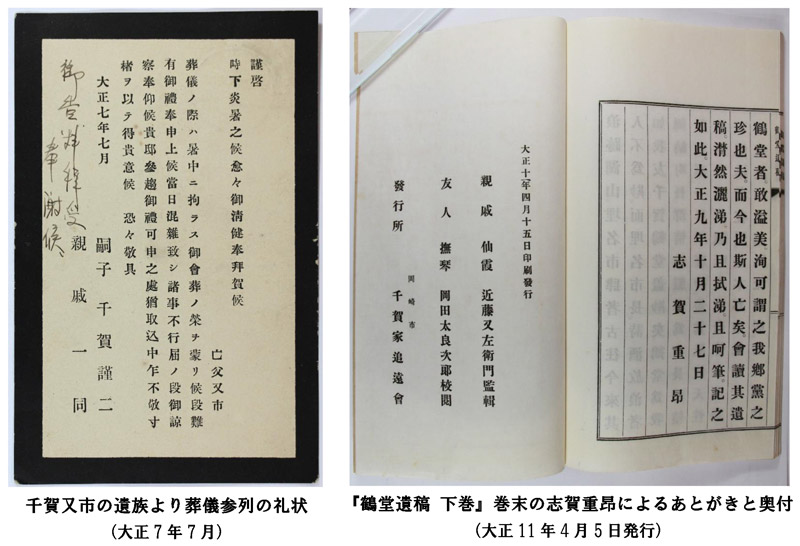 謹啓
時下炎暑之候愈々御清健奉拜賀候
亡父又市
葬儀ノ際ハ暑中ニ拘ラス御會葬ノ榮ヲ蒙リ候段難
有御禮奉申上候當日混雜致シ諸事不行届ノ段御諒
察奉仰候貴邸參趨御禮可申之處猶取込中乍不敬寸
楮ヲ以テ得貴意候 恐々敬具
大正七年七月
嗣子 千賀謹二
親戚一同
御香料拝受
奉謝候
千賀又市の遺族より葬儀参列の礼状
(大正7年7月)
鶴堂者敢溢美洵可謂之我鄕黨之
珍也夫而今也斯人亡矣會讀其遺
稿潸然灑涕乃且拭涕且呵筆記之
如此。大正九年十月二十七日
志賀重昂
大正十一年四月十五日印刷發行
親戚 仙霞 近藤又左衛門監輯
友人 撫琴 岡田太良次郎校閲
發行所 岡崎市 千賀家追遠會
『鶴堂遺稿 下巻』巻末の志賀重昂によるあとがきと奥付
(大正11年4月5日発行)